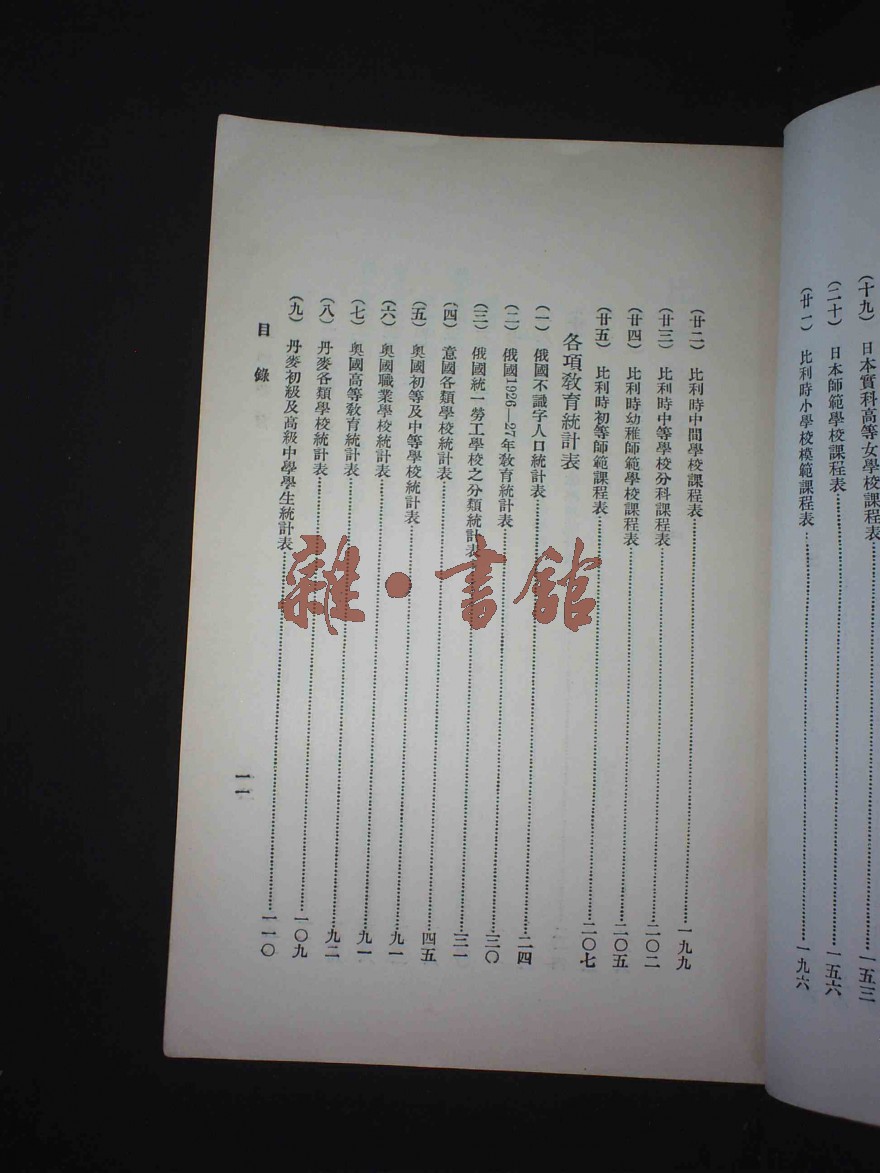 (十九) 日本實科高等女學校課程表……一五三
(二十) 日本師範學校課程表……一五六
(廿一) 比利時小學校模範課程表……一九六
(廿二) 比利時中間學校課程表……一九九
(廿三) 比利時中等學校分科課程表……二〇二
(廿四) 比利時幼稚師範學校課程表……二〇五
(廿五) 比利時初等師範課程表……二〇七
各項敎育統計表
(一) 俄國不識字人口統計表……二四
(二) 俄國1926—27年敎育統計表……三〇
(三) 俄國統一勞工學校之分類統計表……三一
(四) 意國各類學校統計表……四五
(五) 奥國初等及中等學校統計表……九一
(六) 奥國職業學校統計表……九一
(七) 奥國高等敎育統計表……九二
(八) 丹麥各類學校統計表……一〇九
(九) 丹麥初級及高級中學學生統計表……一一〇
目錄
一一
雜·書館